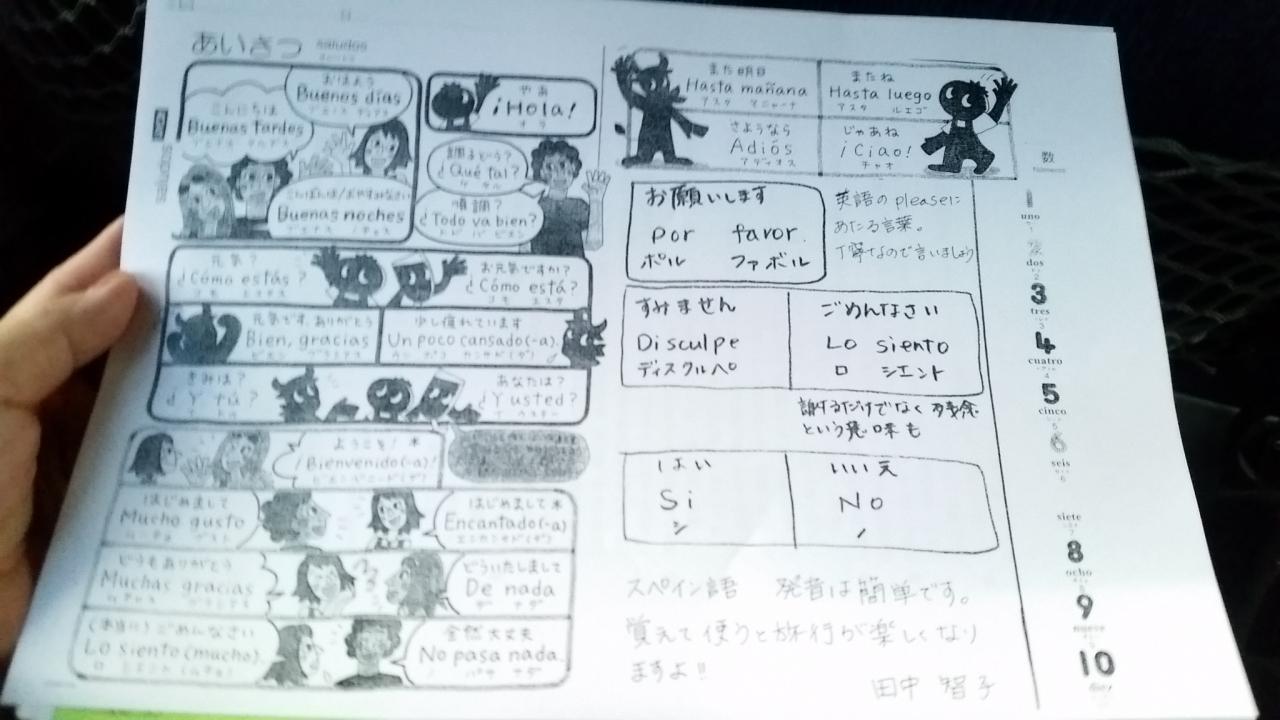 あいさつ saludos
おはよう
Buenos días
ブエノス ディアス
こんにちは
Buenas tardes
ブエナス タルデス
こんばんは/おやすみなさい
Buenas noches
ブエナス ノチェス
やあ
¡Hola!
オラ
調子どう?
¿Qué tal?
ケ タル
順調?
¿Todo va bien?
トド バ ビエン
元気?
¿Cómo estás?
コモ エスタス
お元気ですか?
¿Cómo está?
コモ エスタ
元気です、ありがとう
Bien, gracias
ビエン グラシアス
少し疲れています
Un poco cansado(-a).
ウン ポコ カンサド(ダ)
きみは?
¿Y tú?
イ トゥ
あなたは?
¿Y usted?
イ ウステー
ようこそ! *
¡Bienvenido(-a)!
ビエンベニード(ダ)
はじめまして
Mucho gusto
ムーチョ グスト
はじめまして *
Encantado(-a)
エンカンタド(ダ)
どうもありがとう
Muchas gracias
ムチャス グラシアス
どういたしまして
De nada
デ ナダ
(本当に)ごめんなさい
Lo siento (mucho).
ロ シエント (ムチョ)
全然大丈夫
No pasa nada.
ノ パサ ナダ
また明日
Hasta mañana
アスタ マニャーナ
またね
Hasta luego
アスタ ルエゴ
さようなら
Adiós
アディオス
じゃあね
¡Ciao!
チャオ
お願いします
por favor.
ポル ファボル
英語のpleaseに
あたる言葉。
丁寧なので言いましょう
すみません
Disculpe
ディスクルペ
ごめんなさい
Lo siento
ロ シエント
謝るだけでなく 残念
という意味も
はい
Si
シ
いいえ
No
ノ
スペイン語 発音は簡単です。
覚えて使うと旅行が楽しくなり
ますよ!!
田中 智子
数
Números
1
uno
2
dos
3
tres
4
cuatro
5
cinco
6
seis
siete
8
ocho
9
nueve
10
diez